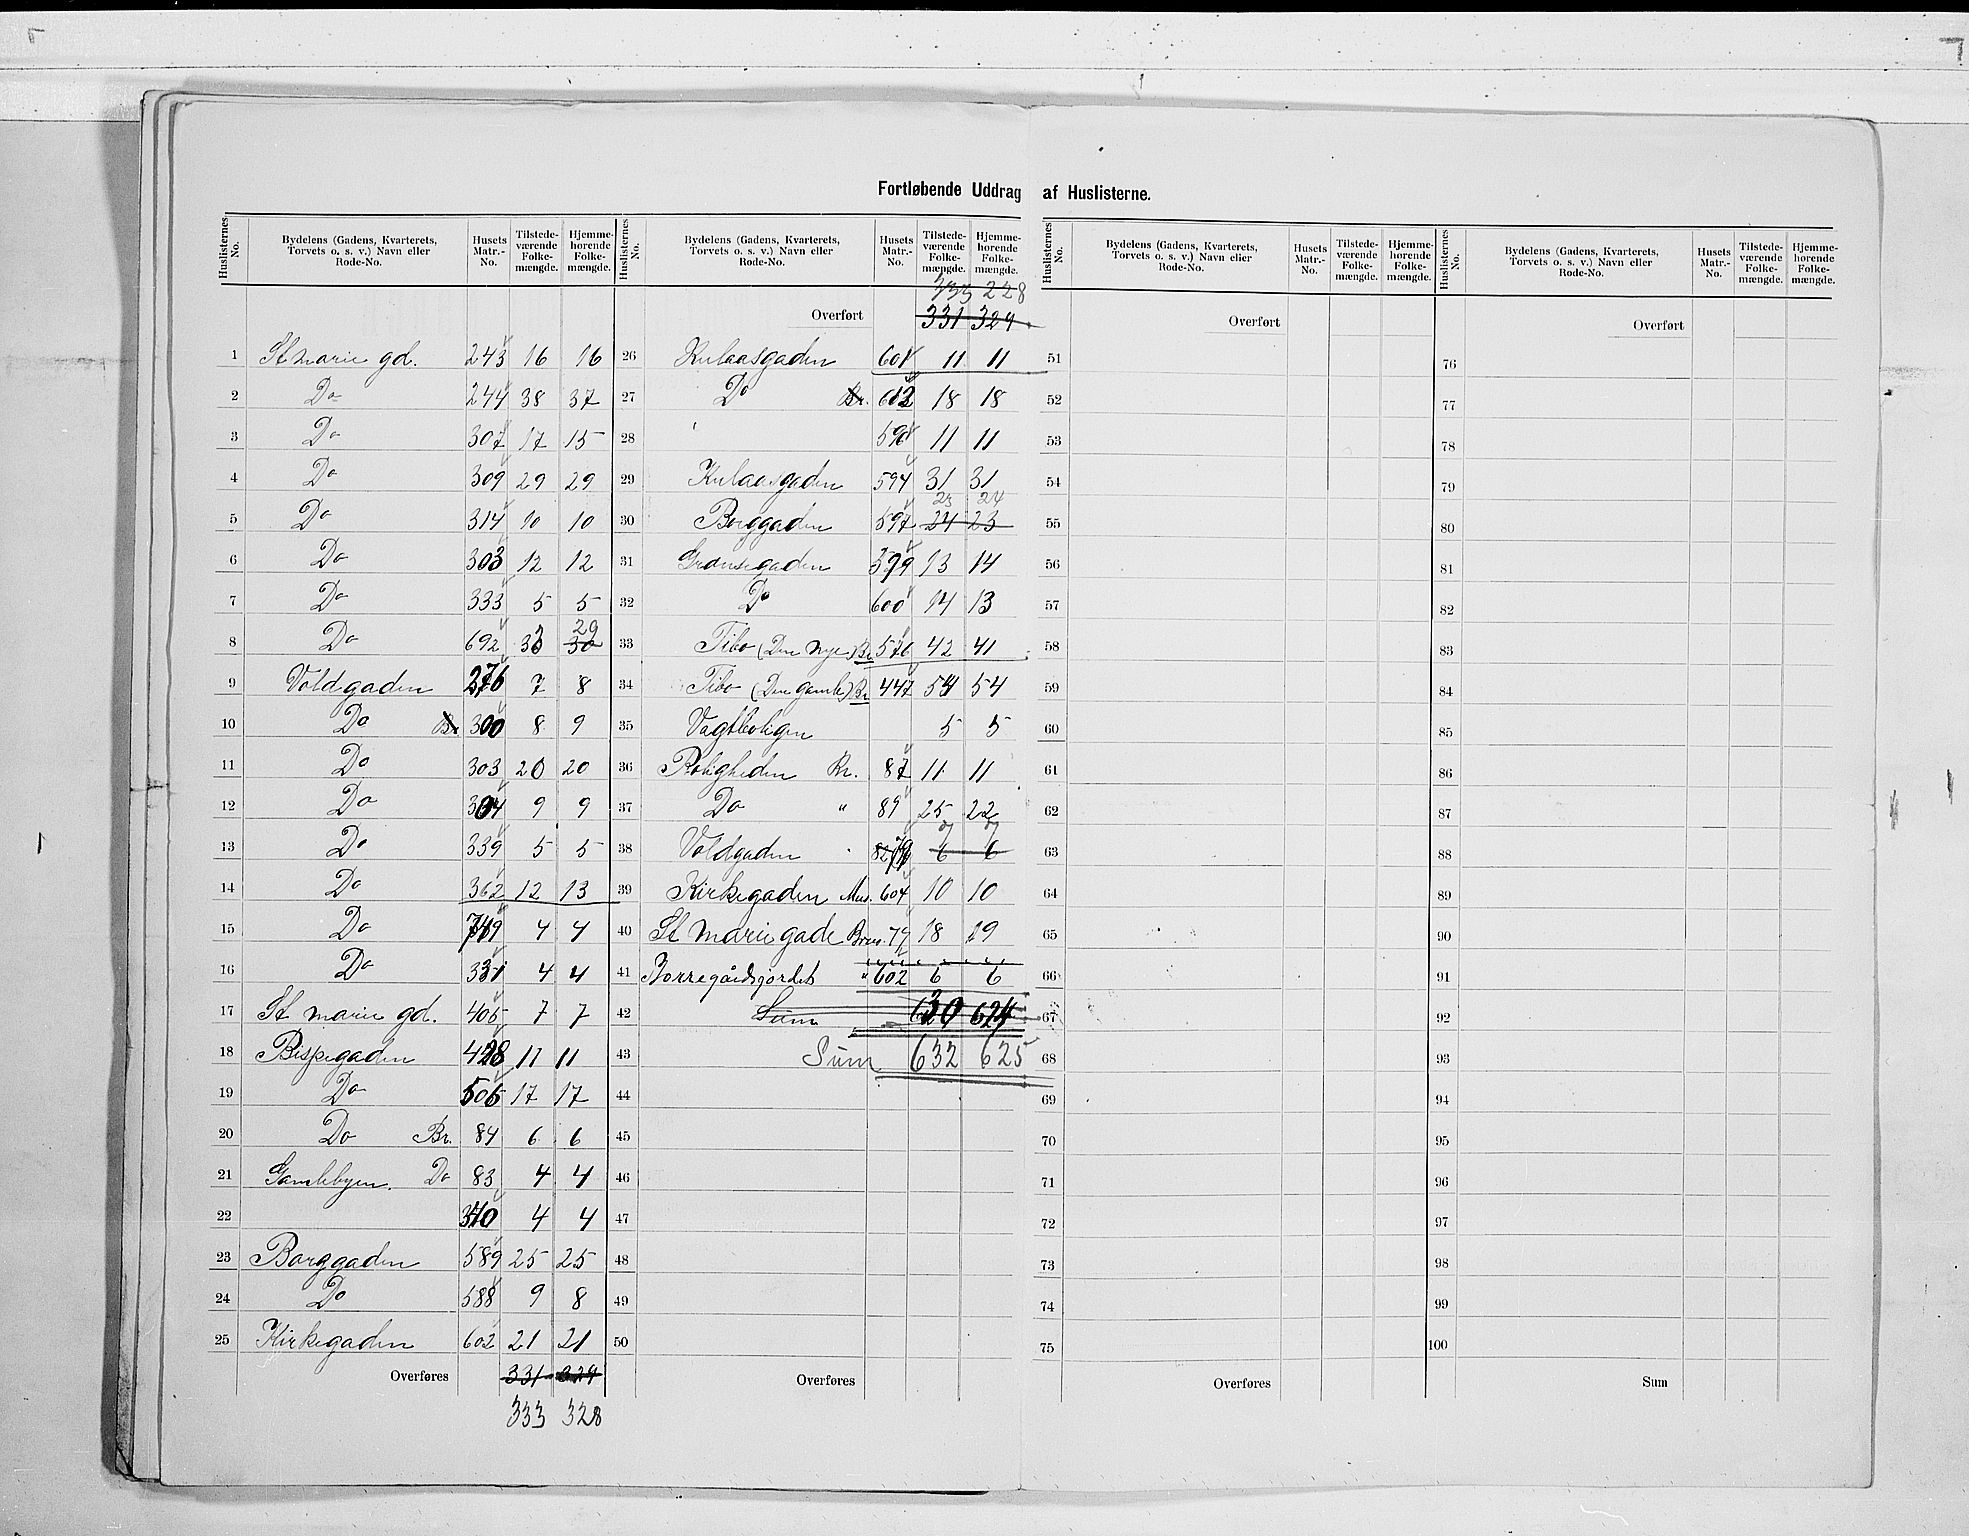 Fortløbende Uddrag af Huslisterne.
Huslisternes No. Bydelens (Gadens, Kvarterets, Torvets o. s. v.) Navn eller Rode-No. Husets Matr.-No. Tilstedeværende Folkemængde. Hjemmehørende Folkemængde.
1 St marie gd. 243 16 16
2 Do 244 38 37
3 Do 307 17 15
4 Do 309 29 29
5 Do 314 10 10
6 Do 303 12 12
7 Do 333 5 5
8 Do 692 33 29 30
9 Voldgaden 276 7 8
10 Do Br 300 8 9
11 Do 303 20 20
12 Do 304 9 9
13 Do 339 5 5
14 Do 362 12 13
15 Do 4 4
16 Do 331 4 4
17 St marie gd. 405 7 7
18 Bispegaden 428 11 11
19 Do 506 17 17
20 Do Br. 84 6 6
21 Gamlebyen. Do 83 4 4
22 370 4 4
23 Borggaden 589 25 25
24 Do 588 9 8
25 Kirkegaden 602 21 21
Overføres 331 329
333 328
Huslisternes No. Bydelens (Gadens, Kvarterets, Torvets o. s. v.) Navn eller Rode-No. Husets Matr.-No. Tilstedeværende Folkemængde. Hjemmehørende Folkemængde.
333 228
Overført 331 329
26 Kulaasgaden 601 11 11
27 Do Br. 18 18
28 590 11 11
29 Kulaasgaden 594 31 31
23 24
30 Borggaden 597 24 23
31 Grænsegaden 599 13 14
32 Do 600 14 13
33 Tibo (Den nye) Br 576 42 41
34 Tibo (Den gamle) Br 447 54 54
35 Vagtboligen 5 5
36 Roligheden Br. 87 11 11
37 Do " 89 25 22
7 7
38 Voldgaden 6 6
39 Kirkegaden Mur. 604 10 10
40 St marie gade 79 18 19
41 Borregårdsjordet " 602 6 6
42 Sum 630 624
43 Sum 632 625
44
45
46
47
48
49
50
Overføres
Huslisternes No. Bydelens (Gadens, Kvarterets, Torvets o. s. v.) Navn eller Rode-No. Husets Matr.-No. Tilstedeværende Folkemængde. Hjemmehørende Folkemængde.
Overført
51
52
53
54
55
56
57
58
59
60
61
62
63
64
65
66
67
68
69
70
71
72
73
74
75
Overføres
Huslisternes No. Bydelens (Gadens, Kvarterets, Torvets o. s. v.) Navn eller Rode-No. Husets Matr.-No. Tilstedeværende Folkemængde. Hjemmehørende Folkemængde.
Overført
76
77
78
79
80
81
82
83
84
85
86
87
88
89
90
91
92
93
94
95
96
97
98
99
100
Sum